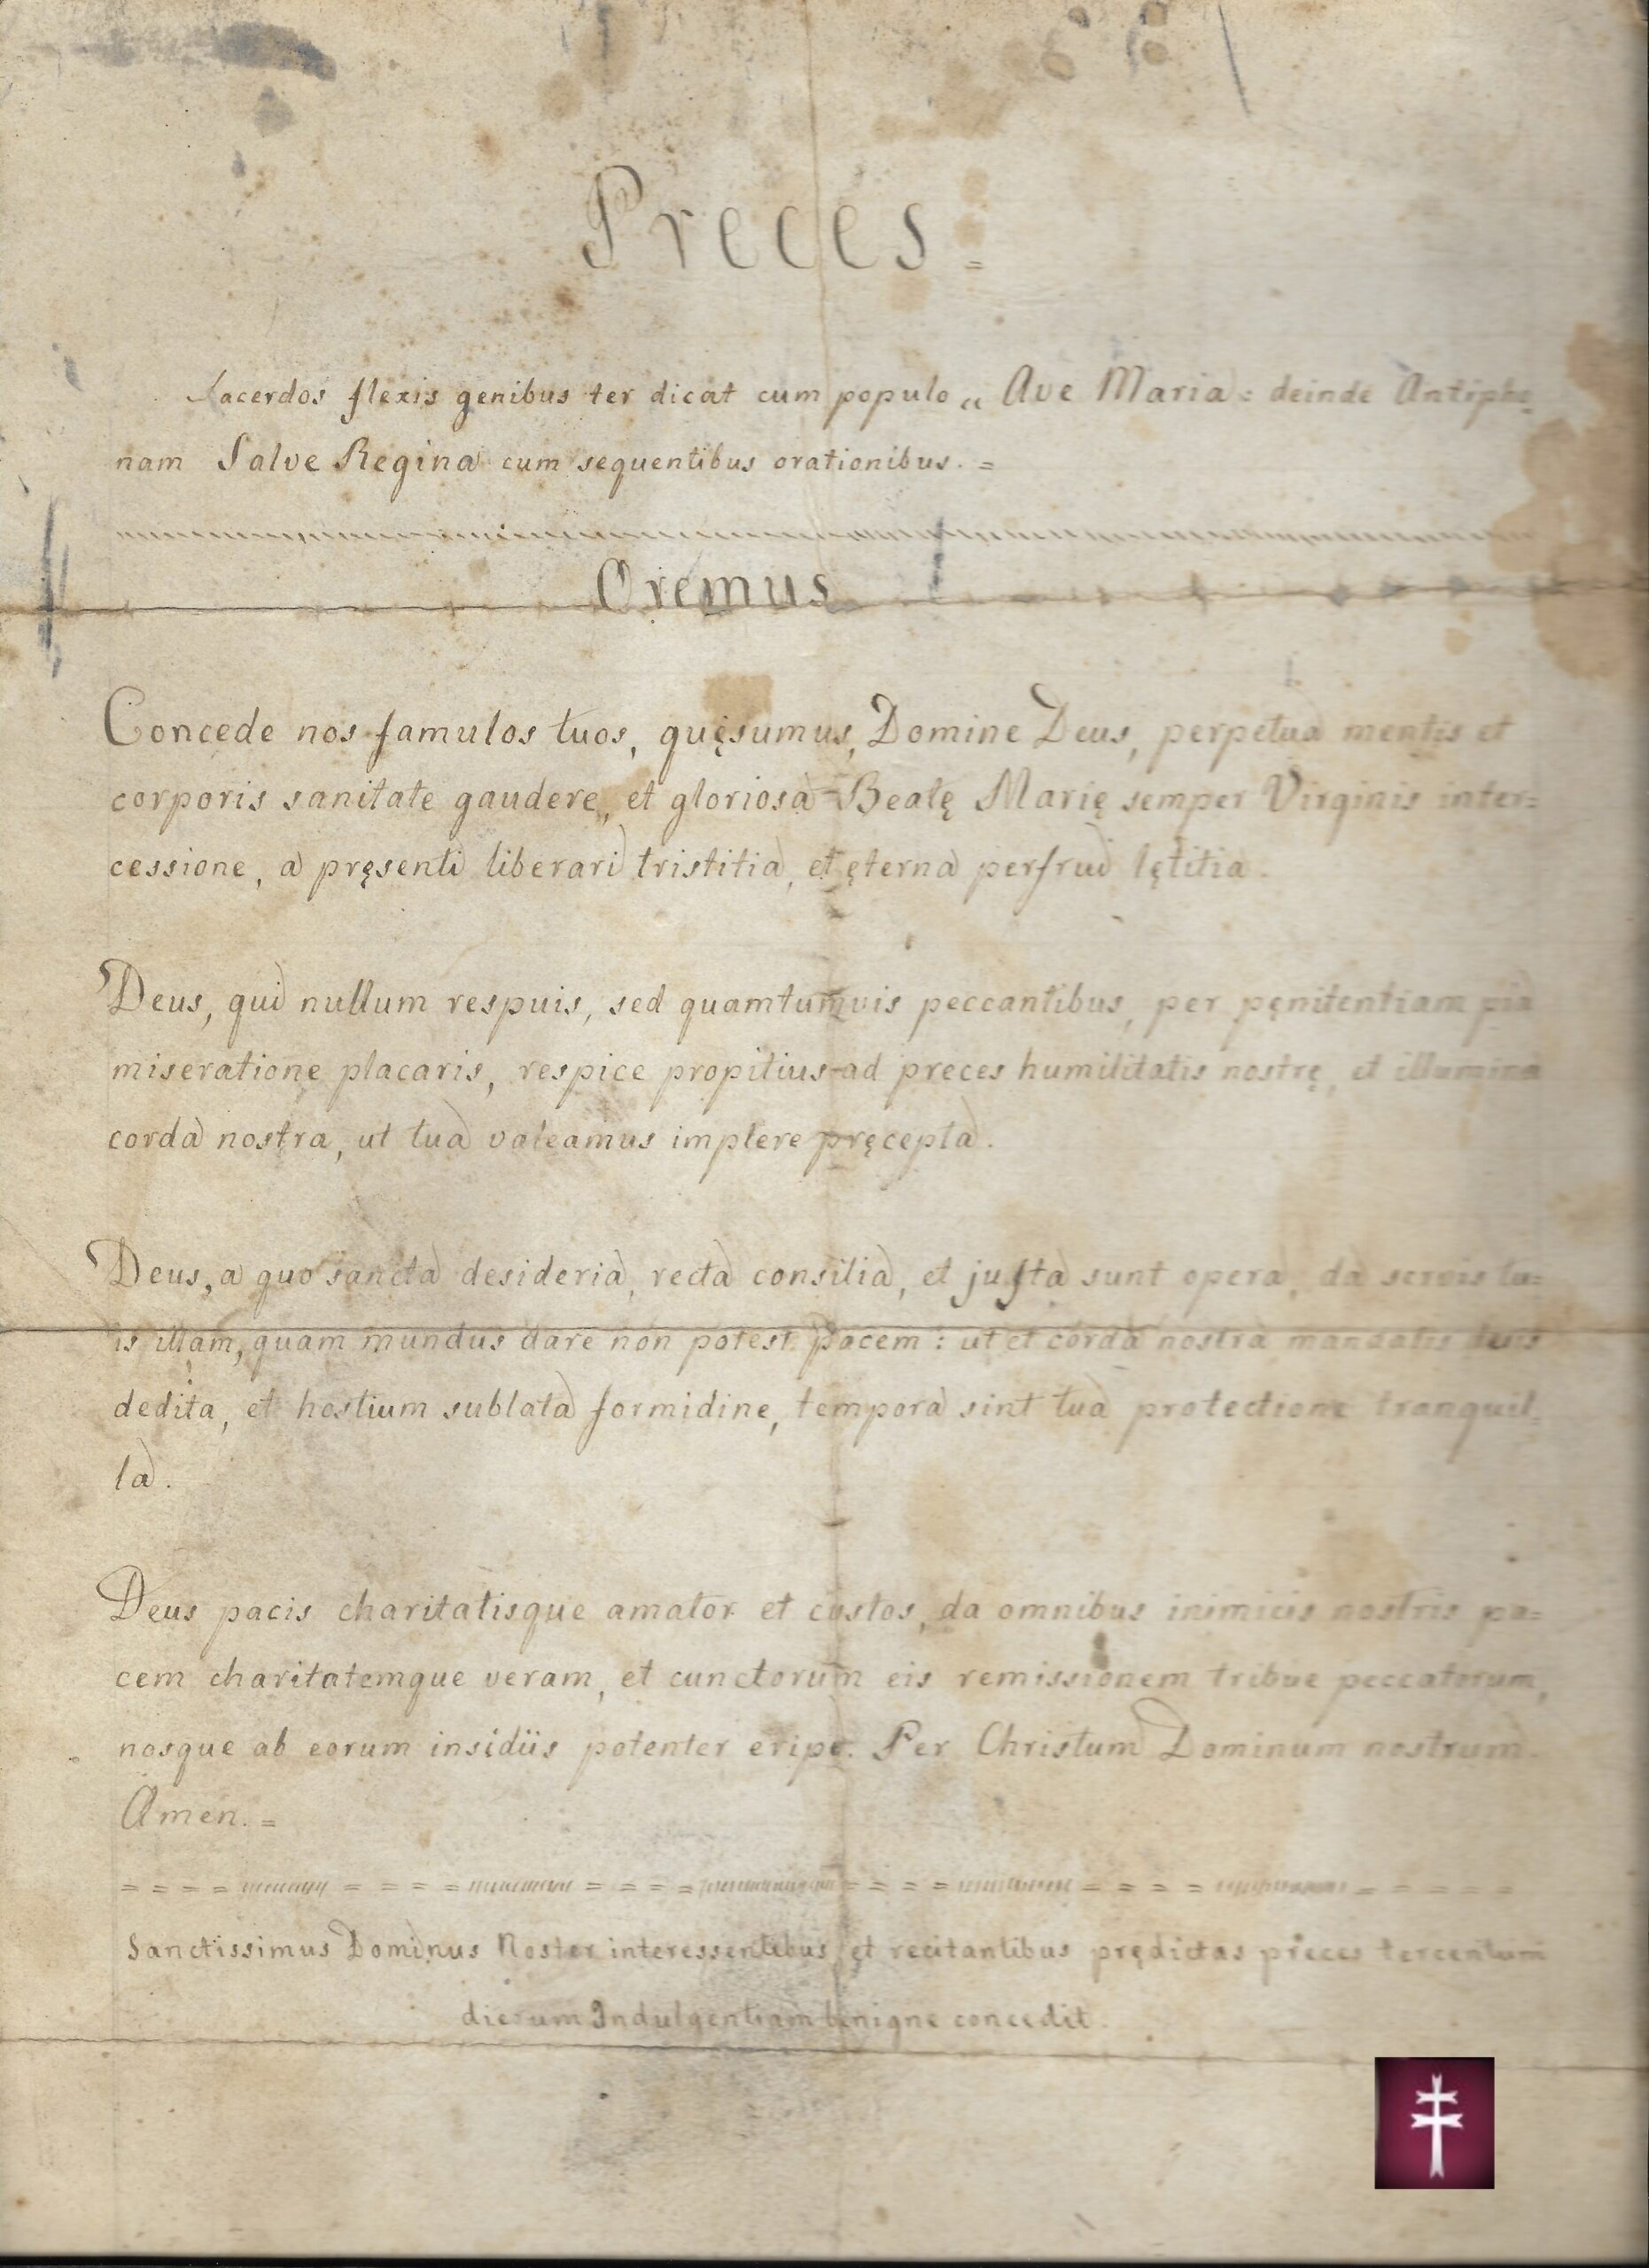 Preces =
Sacerdos flexis genibus ter dicat cum populo „ Ave Maria = deinde Antipho=
nam Salve Regina cum sequentibus orationibus. =
Oremus
Concede nos famulos tuos, quęsumus, Domine Deus, perpetua mentis et
corporis sanitate gaudere, et gloriosa Beatę Marię semper Virginis inter=
cessione, a pręsenti liberari tristitia, et ęterna perfrui lętitia.
Deus, qui nullum respuis, sed quamtumvis peccantibus, per pęnitentiam pia
miseratione placaris, respice propitius ad preces humilitatis nostrę, et illumina
corda nostra, ut tua valeamus implere pręcepta.
Deus, a quo sancta desideria, recta consilia, et justa sunt opera, da servis tu=
is illam, quam mundus dare non potest pacem: ut et corda nostra mandatis tuis
dedita, et hostium sublata formidine, tempora sint tua protectione tranquil=
la.
Deus pacis charitatisque amator et custos, da omnibus inimicis nostris pa=
cem charitatemque veram, et cunctorum eis remissionem tribue peccatorum,
nosque ab eorum insidiis potenter eripe. Per Christum Dominum nostrum.
Amen. =
Sanctissimus Dominus Noster interessentibus, et recitantibus prędictas preces tercentum
dierum Indulgentiam benigne concedit.